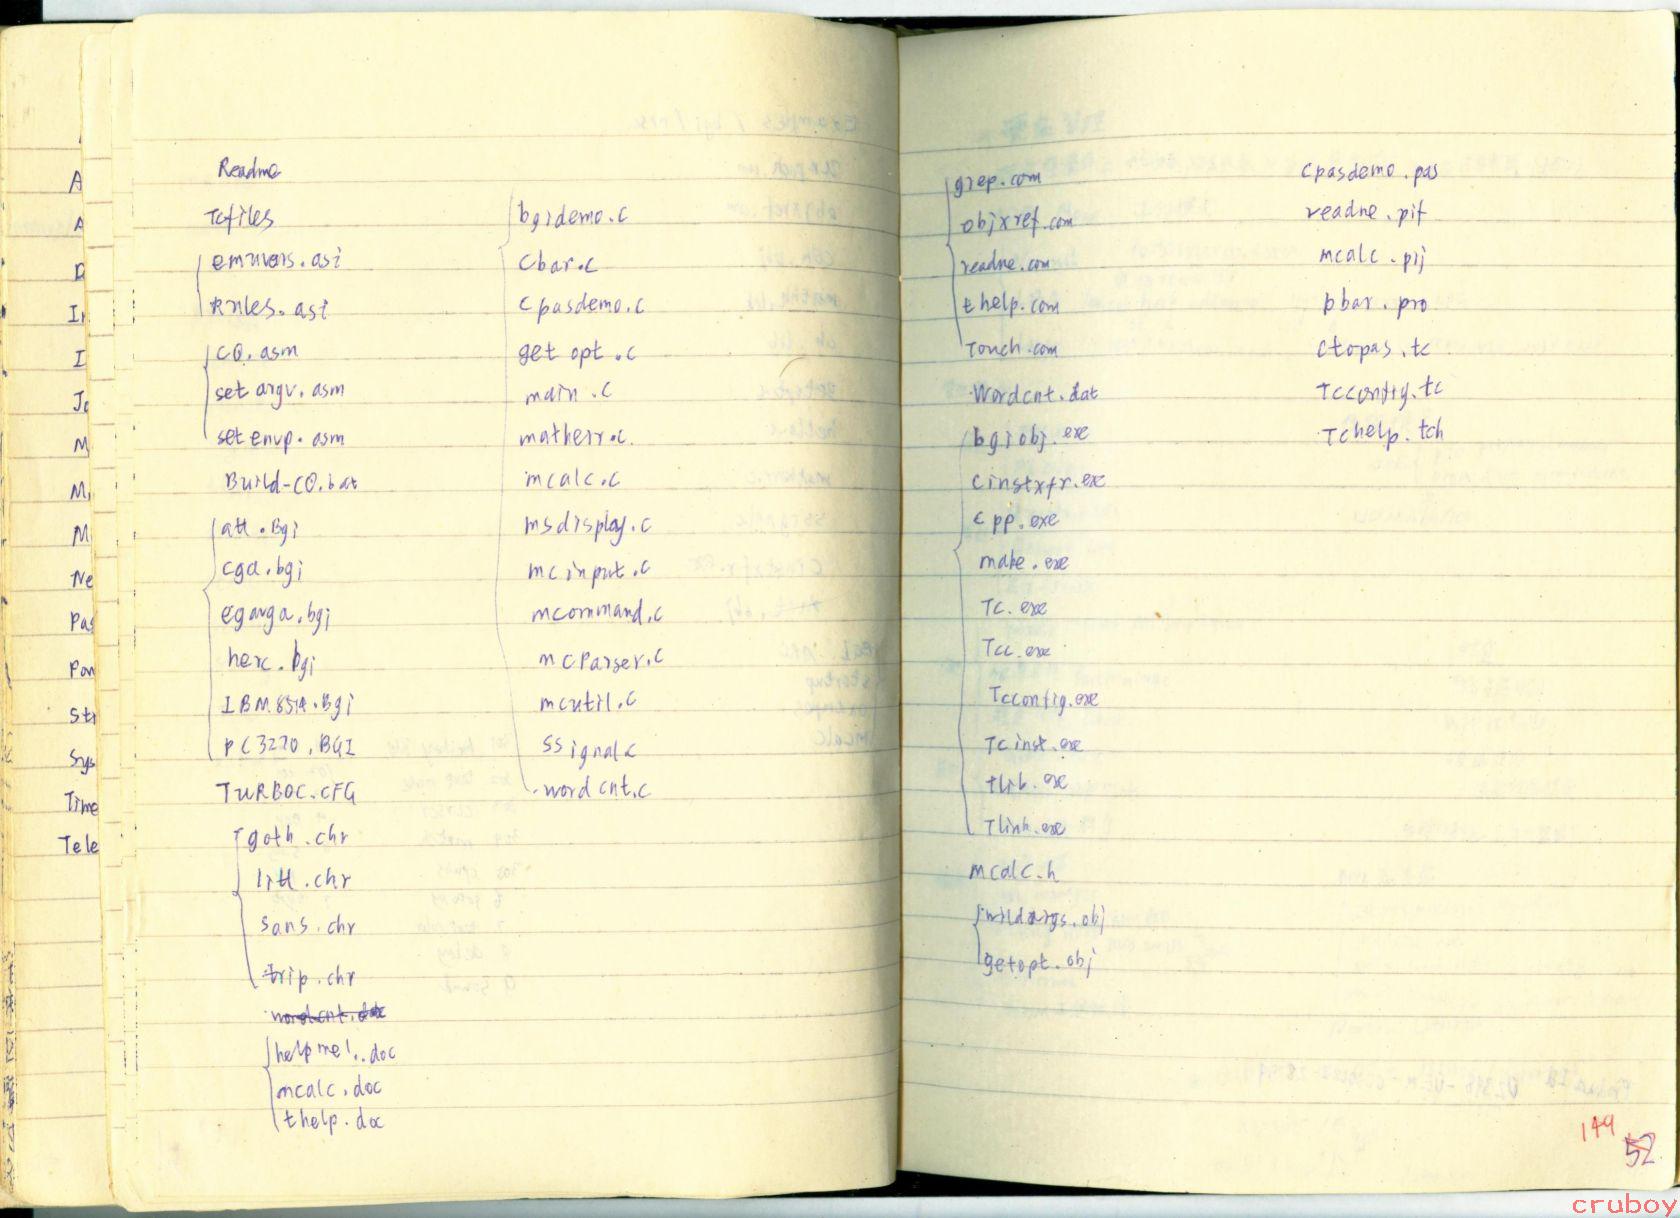 A
A
D
I
J
M
M
M
Ne
Pas
Pow
Str
Sys
Time
Tele
Readme
Tcfiles
emuvars.asi
Rules.asi
C0.asm
setargv.asm
setenvp.asm
Build-C0.bat
att.Bgi
cga.bgi
egavga.bgi
herc.bgi
IBM8514.Bgi
PC3270.BGI
TURBOC.CFG
goth.chr
litt.chr
sans.chr
trip.chr
helpme!.doc
mcalc.doc
thelp.doc
bgidemo.c
Cbar.c
Cpasdemo.c
get opt.c
main.c
matherr.c.
mcalc.c
msdisplay.c
mcinput.c
mcommand.c
mcParser.c
mcutil.c
SSignal.c
word cnt.c
grep.com
objxref.com
readme.com
thelp.com
Touch.com
Wordcnt.dat
bgiobj.exe
Cinstxfr.exe
Cpp.exe
make.exe
Tc.exe
Tcc.exe
Tcconfig.exe
Tcinst.exe
tlib.exe
Tlink.exe
mcalc.h
wildargs.obj
getopt.obj
Cpasdemo.pas
readme.pif
mcalc.prj
bbar.pro
Ctopas.tc
Tcconfig.tc
Tchelp.tch
149
52
cruboy